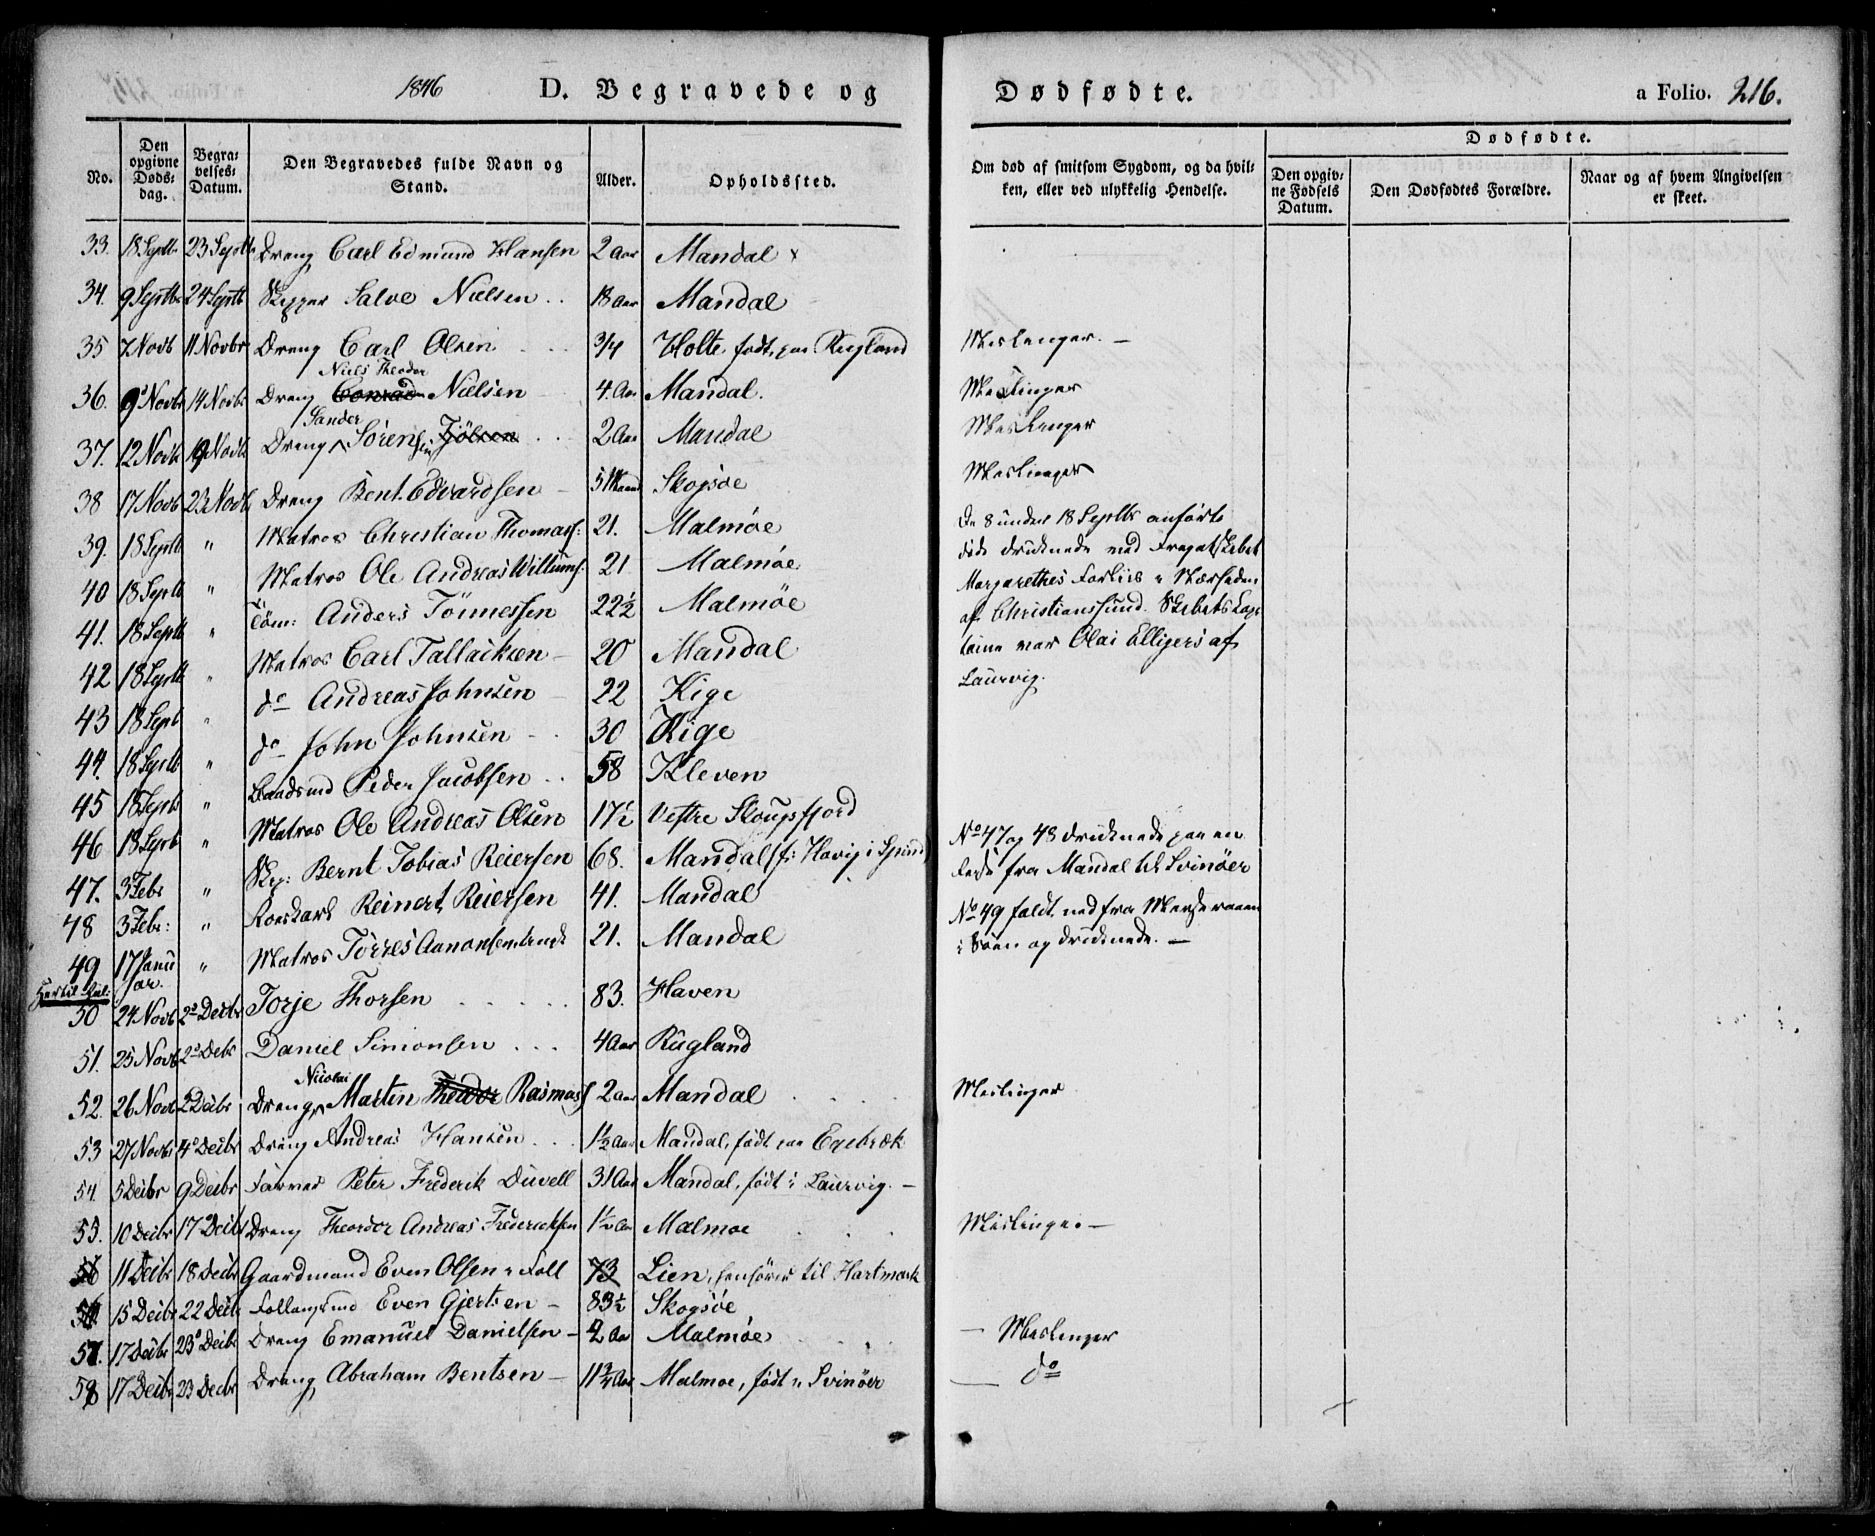 1846 D. Begravede og Dødfødte. a Folio. 216.
No. Den opgivne Døds-dag. Begra-velses-Datum. Den Begravedes fulde Navn og Stand. Alder. Opholdssted. Om død af smitsom Sygdom, og da hvil-ken, eller ved ulykkelig Hendelse. Dødfødte. Den opgiv-ne Fødsels Datum. Den Dødfødtes Forældre. Naar og af hvem Angivelsen er skeet.
33. 18 Septb 23 Septb Dreng Carl Edmund Hansen 2 Aar Mandal x
34. 9 Septb 24 Septb Skipper Salve Nielsen .. 18 Aar Mandal
35 7 Novb 11 Novbr Dreng Carl Olsen 3/4 Holte født paa Rugland Meslinger. —
Niels Theodor
36. 9 Novbr 14 Novbr Dreng Conrad Nielsen 4. Aar Mandal. Meslinger
Sander
37. 12 Novb 19 Novb Dreng Søren Tjølsen 2 Aar Mandal Meslinger
38 17 Novb 23 Novb Dreng Bent Edvardsen — 5 Maand Skogsøe Meslinger
39. 18 Septb " Matros Christian Thomass: 21. Malmøe
De 8 under 18 Septb anførte
40 18 Septb " Matros Ole Andreas Willums: 21 Malmøe
døde druknede med Fregatskibet
41. 18 Septb " Tøm: Anders Tönnessen 22½ Malmøe
Margarethes Forliis
42 18 Septb " Matros Carl Tallaksen — 20 Mandal
af Christianssund. Skibets Cap-
43 18 Septb " do Andreas Johnsen — 22 Kige
taine var Olai Elligers af
Laurvig.
44. 18 Septb " do John Johnsen 30 Kige
45 18 Septb " Baadsmd Peder Jacobsen .. 58 Kleven
46 18 Septb " Matros Ole Andreas Olsen 17½ Vestre Skougsfjord
47. 3 Febr " Skp: Bernt Tobias Reiersen 68. Mandal (f: Havig i Spind)
No 47 og 48 druknede paa en
48 3 Febr: " Roeskarl Reinert Reiersen 41. Mandal
Færd fra Mandal til Svinøer
49 17 Januar. " Matros Törres Aanonsen 21. Mandal
No 49 faldt ned fra Merseraaen
i Søen og druknede. —
50 24 Novb 2 Decbr Torje Thorsen 83. Haven
51. 25 Novb 2 Decbr Daniel Simonsen ... 4 Aar Rugland
Nicolai
52. 26 Novb 2 Decbr Dreng Martin Theodor Rasmuss 2 Aar Mandal Meslinger
53 27 Novb 4 Decbr Dreng Andreas Hansen .. 1½ Aar Mandal, født paa Egebræk
54. 5 Decbr 9 Decbr Farver Peter Frederik Duvell 31 Aar Mandal, født i Laurvig. —
55. 10 Decbr 17 Decbr Dreng Theordor Andreas Frederiksen 1½ Aar Malmøe Meslinger —
56 11 Decbr 18 Decbr Gaardmand Even Olsen 73 Lien, henhører til Hartmark
56 15 Decbr 22 Decbr Even Gjertsen — 83½ Skogsøe
57. 17 Decbr 23 Decbr Dreng Emanuel Danielsen — 2 Aar Malmøe — Meslinger
58 17 Decbr 23 Decbr Dreng Abraham Bentsen — Malmøe, født i Svinøer — do